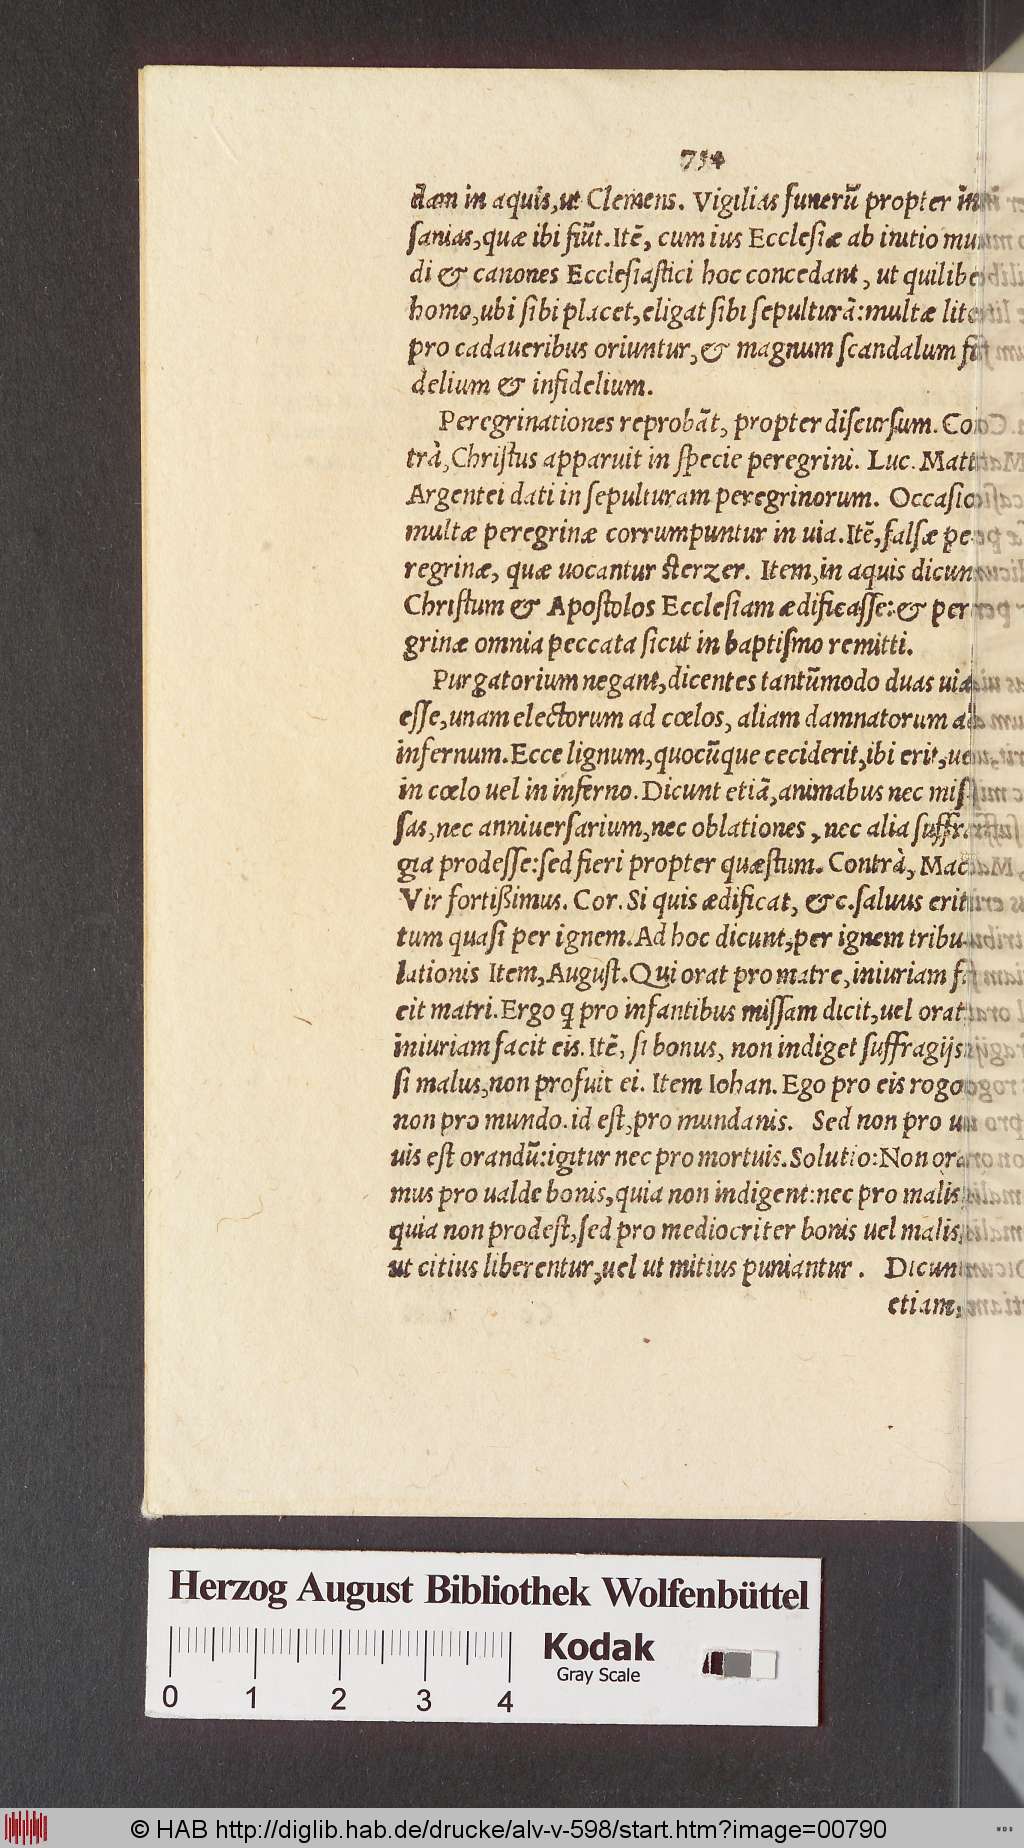 754
dam in aquis, ut Clemens. Vigilias funerū propter in
sanias, quæ ibi fiūt. Itē, cum ius Ecclesiæ ab initio mu
di & canones Ecclesiastici hoc concedant, ut quilibe
homo, ubi sibi placet, eligat sibi sepulturā: multæ lit
pro cadaueribus oriuntur, & magnum scandalum fi
delium & infidelium.
Peregrinationes reprobāt, propter discursum. Co
trà, Christus apparuit in specie peregrini. Luc. Matt
Argentei dati in sepulturam peregrinorum. Occasio
multæ peregrinæ corrumpuntur in uia. Itē, falsæ pe
regrinæ, quæ uocantur sterzer. Item, in aquis dicun
Christum & Apostolos Ecclesiam ædificasse: & per
grinæ omnia peccata sicut in baptismo remitti.
Purgatorium negant, dicentes tantūmodo duas uia
esse, unam electorum ad cœlos, aliam damnatorum a
infernum. Ecce lignum, quocūque ceciderit, ibi erit, ue
in cœlo uel in inferno. Dicunt etiā, animabus nec mis
sas, nec anniuersarium, nec oblationes, nec alia suffra
gia prodesse: sed fieri propter quæstum. Contrà, Mac
Vir fortißimus. Cor. Si quis ædificat, &c. saluus erit
tum quasi per ignem. Ad hoc dicunt, per ignem tribu-
lationis Item, August. Qui orat pro matre, iniuriam fa
cit matri. Ergo q̨ pro infantibus missam dicit, uel orat
iniuriam facit eis. Itē, si bonus, non indiget suffragijs
si malus, non profuit ei. Item Iohan. Ego pro eis rogo
non pro mundo. id est, pro mundanis. Sed non pro u
uis est orandū: igitur nec pro mortuis. Solutio: Non ora
mus pro ualde bonis, quia non indigent: nec pro malis
quia non prodest, sed pro mediocriter bonis uel malis,
ut citius liberentur, uel ut mitius puniantur. Dicun
etiam,
Herzog August Bibliothek Wolfenbüttel
Kodak
Gray Scale
0 1 2 3 4
© HAB http://diglib.hab.de/drucke/alv-v-598/start.htm?image=00790